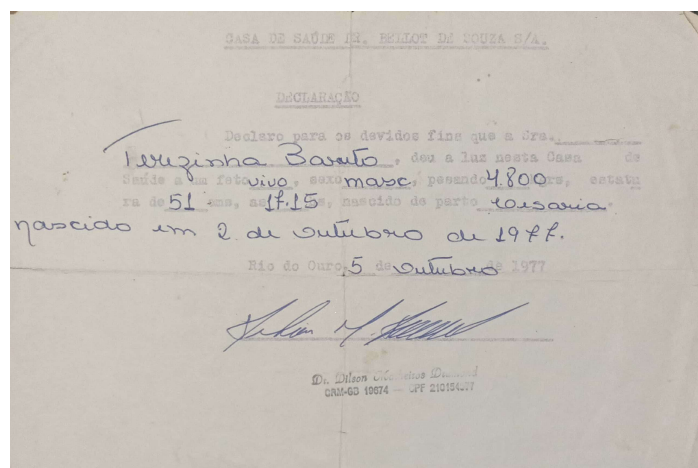 CASA DE SAÚDE DR. BELLOT DE SOUZA S/A.
DECLARAÇÃO
Declaro para os devidos fins que a Sra.
Terezinha Barreto, deu a luz nesta Casa de
Saúde a um feto vivo, sexo masc, pesando 4.800 grs, estatu
ra de 51 cms, as 17.15 hs, nascido de parto cesaria.
nascido em 2 de outubro de 1977.
Rio do Ouro, 5 de outubro de 1977
Dr. Dilson
CRM-GB 19674 — CPF